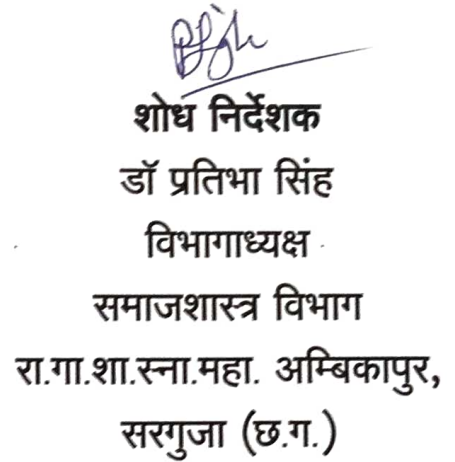 शोध निर्देशक
डॉ प्रतिभा सिंह
विभागाध्यक्ष
समाजशास्त्र विभाग
रा.गा.शा.स्ना.महा. अम्बिकापुर,
सरगुजा (छ.ग.)